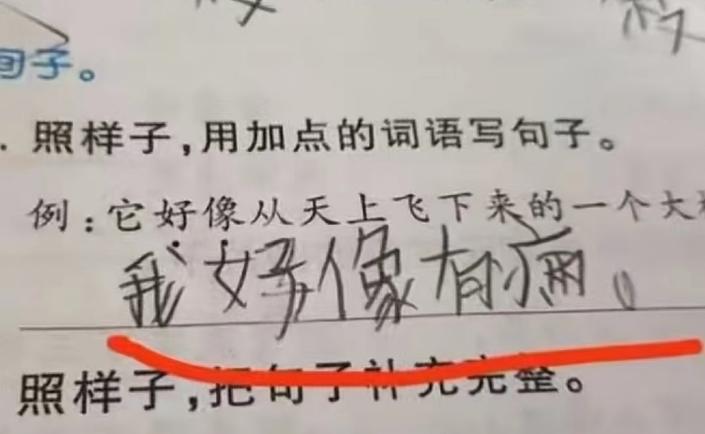 句子。
照样子，用加点的词语写句子。
例：它好像从天上飞下来的一个大
我好像有病。
照样子，把句子补充完整。